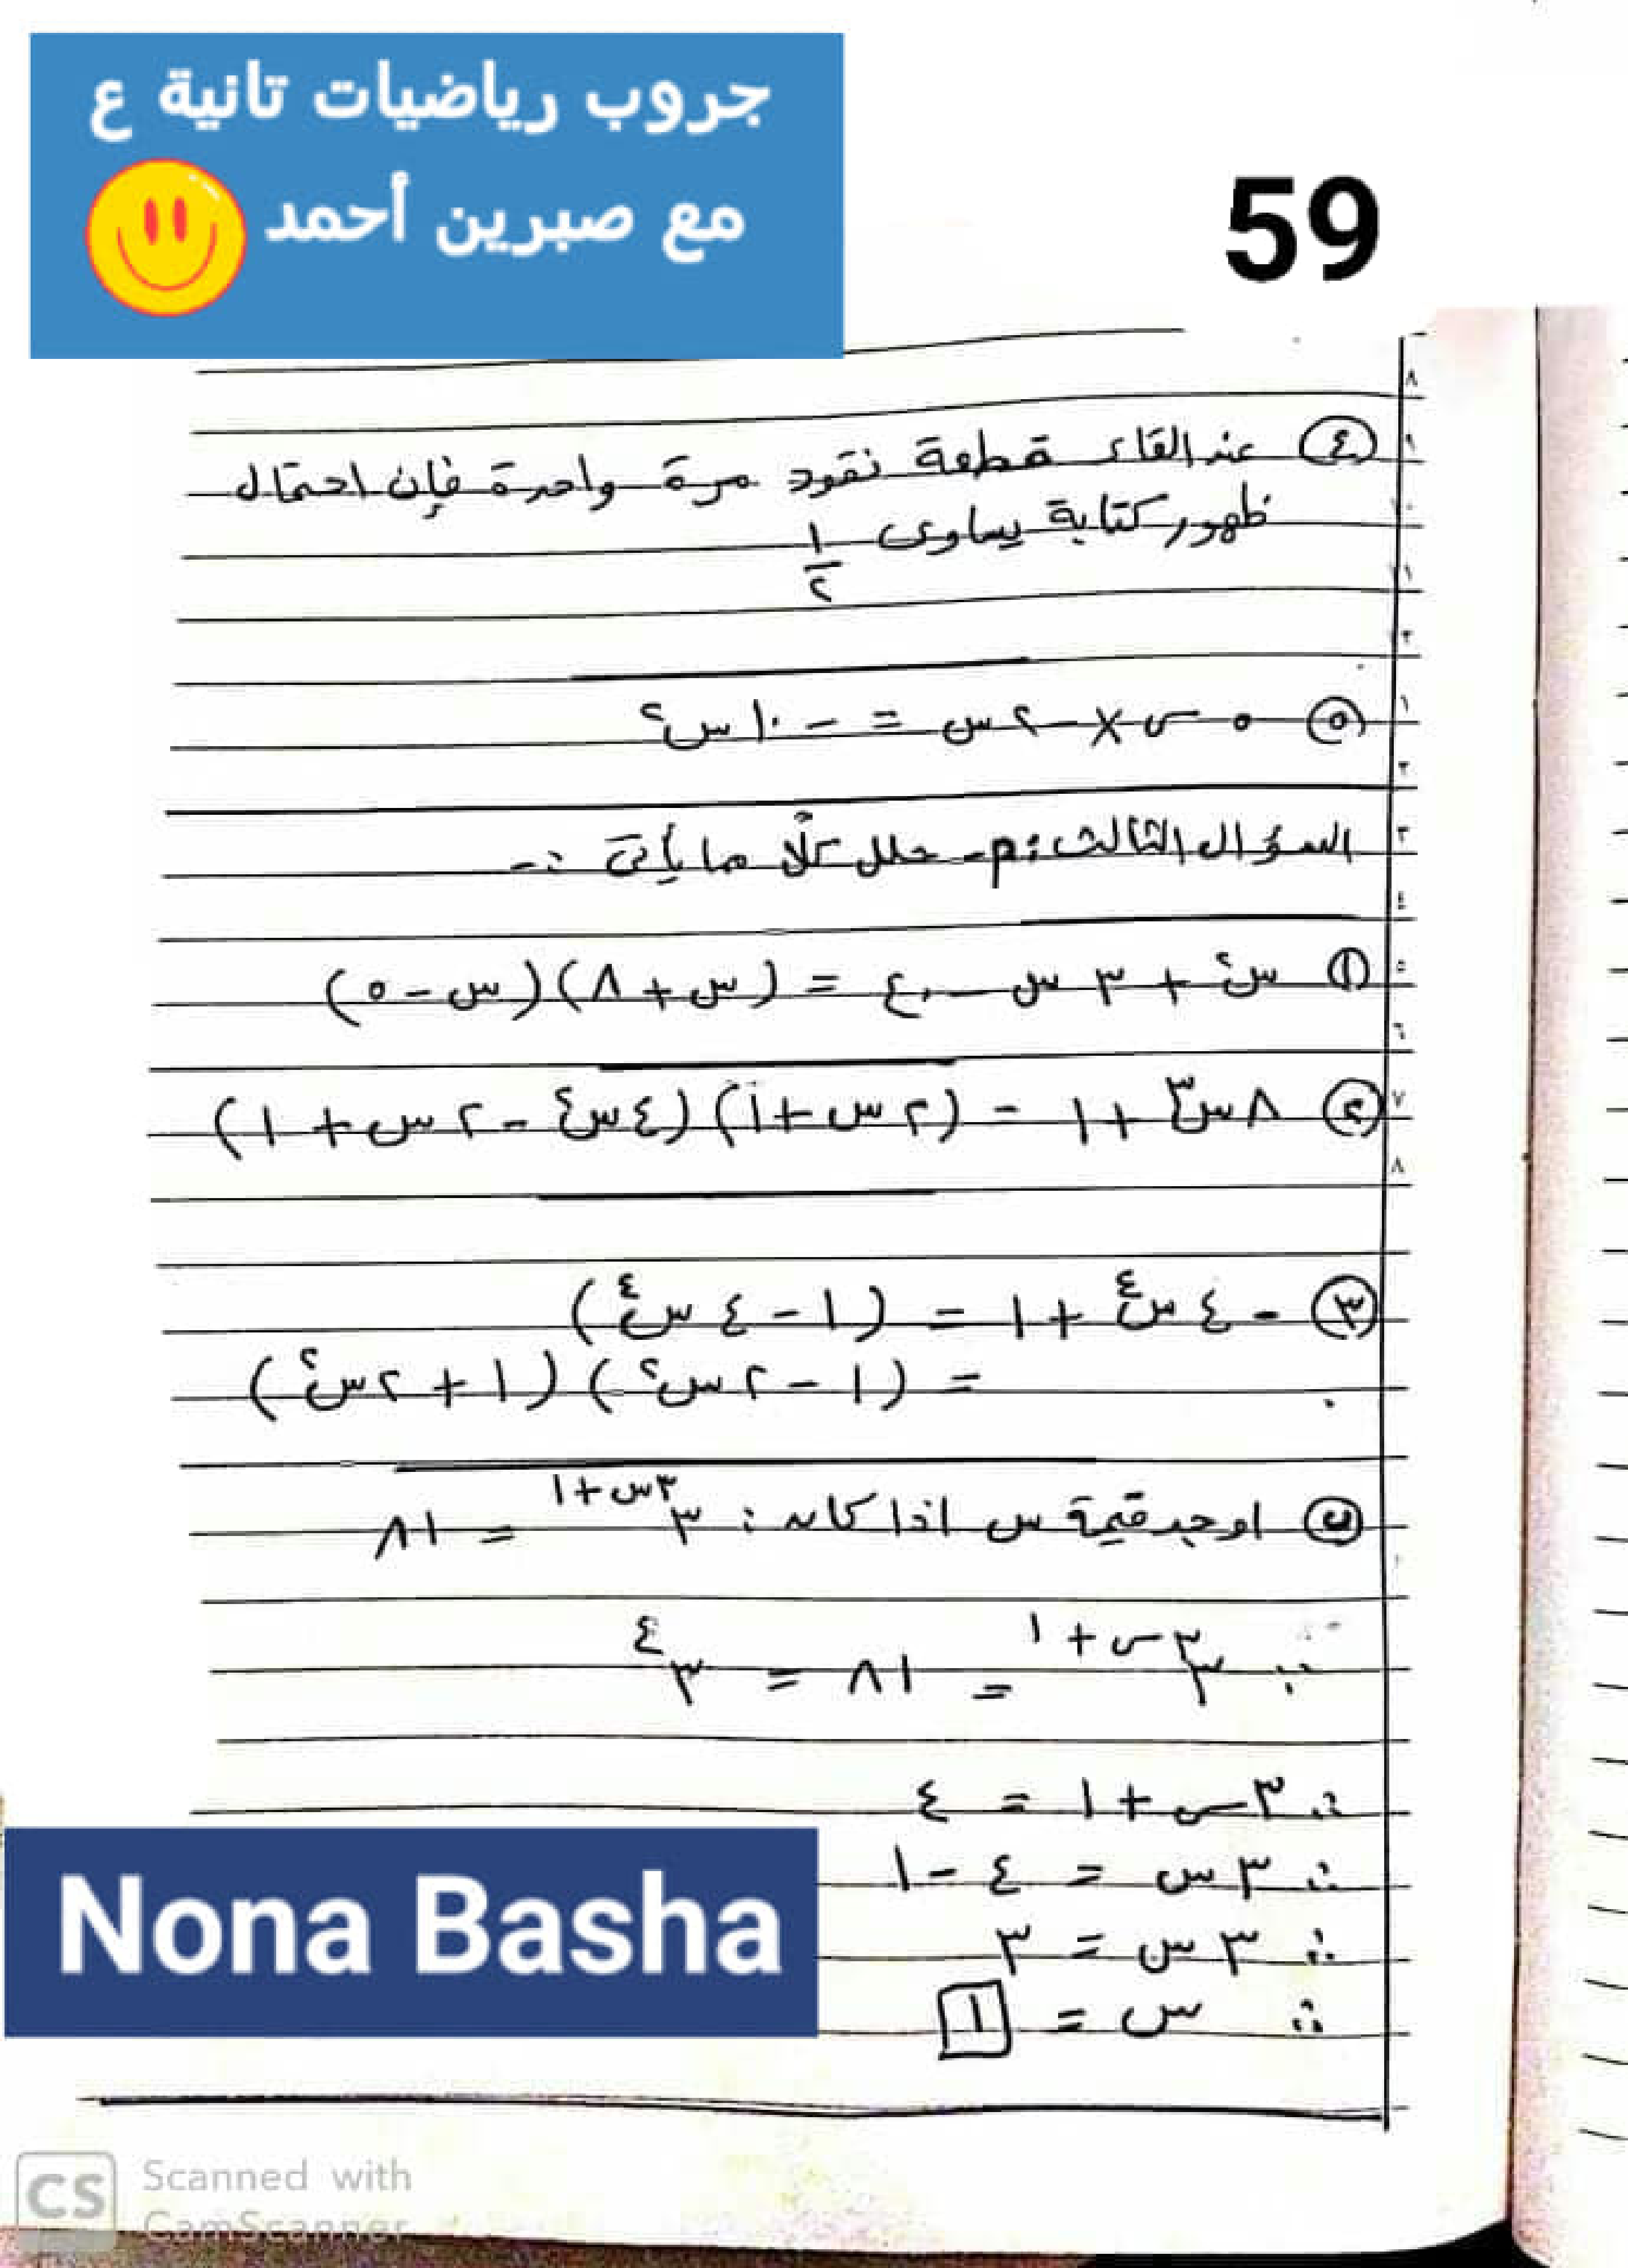 جروب رياضيات تانية ع
مع صبرين أحمد
59
٤ عند القاء قطعة نقود مرة واحدة فإن احتمال
ظهور كتابة يساوى ١/٢
٥ ٥ س × -٢ س = - ١٠ س٢
السؤال الثالث : م- حلل كلًا مما يأتى :-
١ س٢ + ٣ س - ٤٠ = (س + ٨)(س - ٥)
٢ ٨ س٣ + ١ = (٢ س + ١)(٤ س٢ - ٢ س + ١)
٣ - ٤ س٤ + ١ = (١ - ٤ س٤)
= (١ - ٢ س٢)(١ + ٢ س٢)
ب اوجد قيمة س اذا كان : ٣^(٣س+١) = ٨١
∵ ٣^(٣س+١) = ٨١ = ٣^٤
∴ ٣ س + ١ = ٤
∴ ٣ س = ٤ - ١
∴ ٣ س = ٣
∴ س = ١
Nona Basha
CS Scanned with
CamScanner